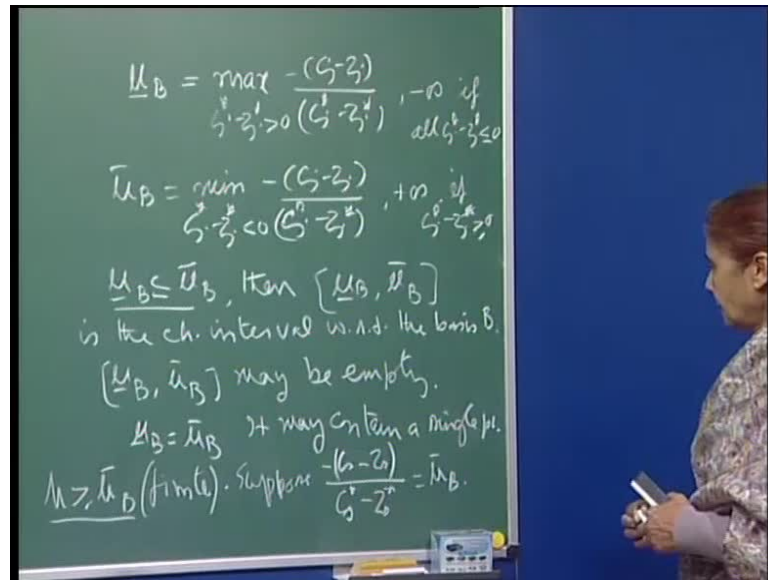 μ̲_B = max_{c_j^*-z_j^*>0} -(c_j-z_j)/(c_j^*-z_j^*), -∞ if all c_j^*-z_j^*≤0
μ̄_B = min_{c_j^*-z_j^*<0} -(c_j-z_j)/(c_j^*-z_j^*), +∞ if c_j^*-z_j^*≥0
μ̲_B ≤ μ̄_B, then [μ̲_B, μ̄_B]
is the ch. interval w.r.t. the basis B.
[μ̲_B, μ̄_B] may be empty.
μ̲_B = μ̄_B It may contain a single pt.
μ ≥ μ̄_B (finite). Suppose -(c_s-z_s)/(c_s^*-z_s^*) = μ̄_B.